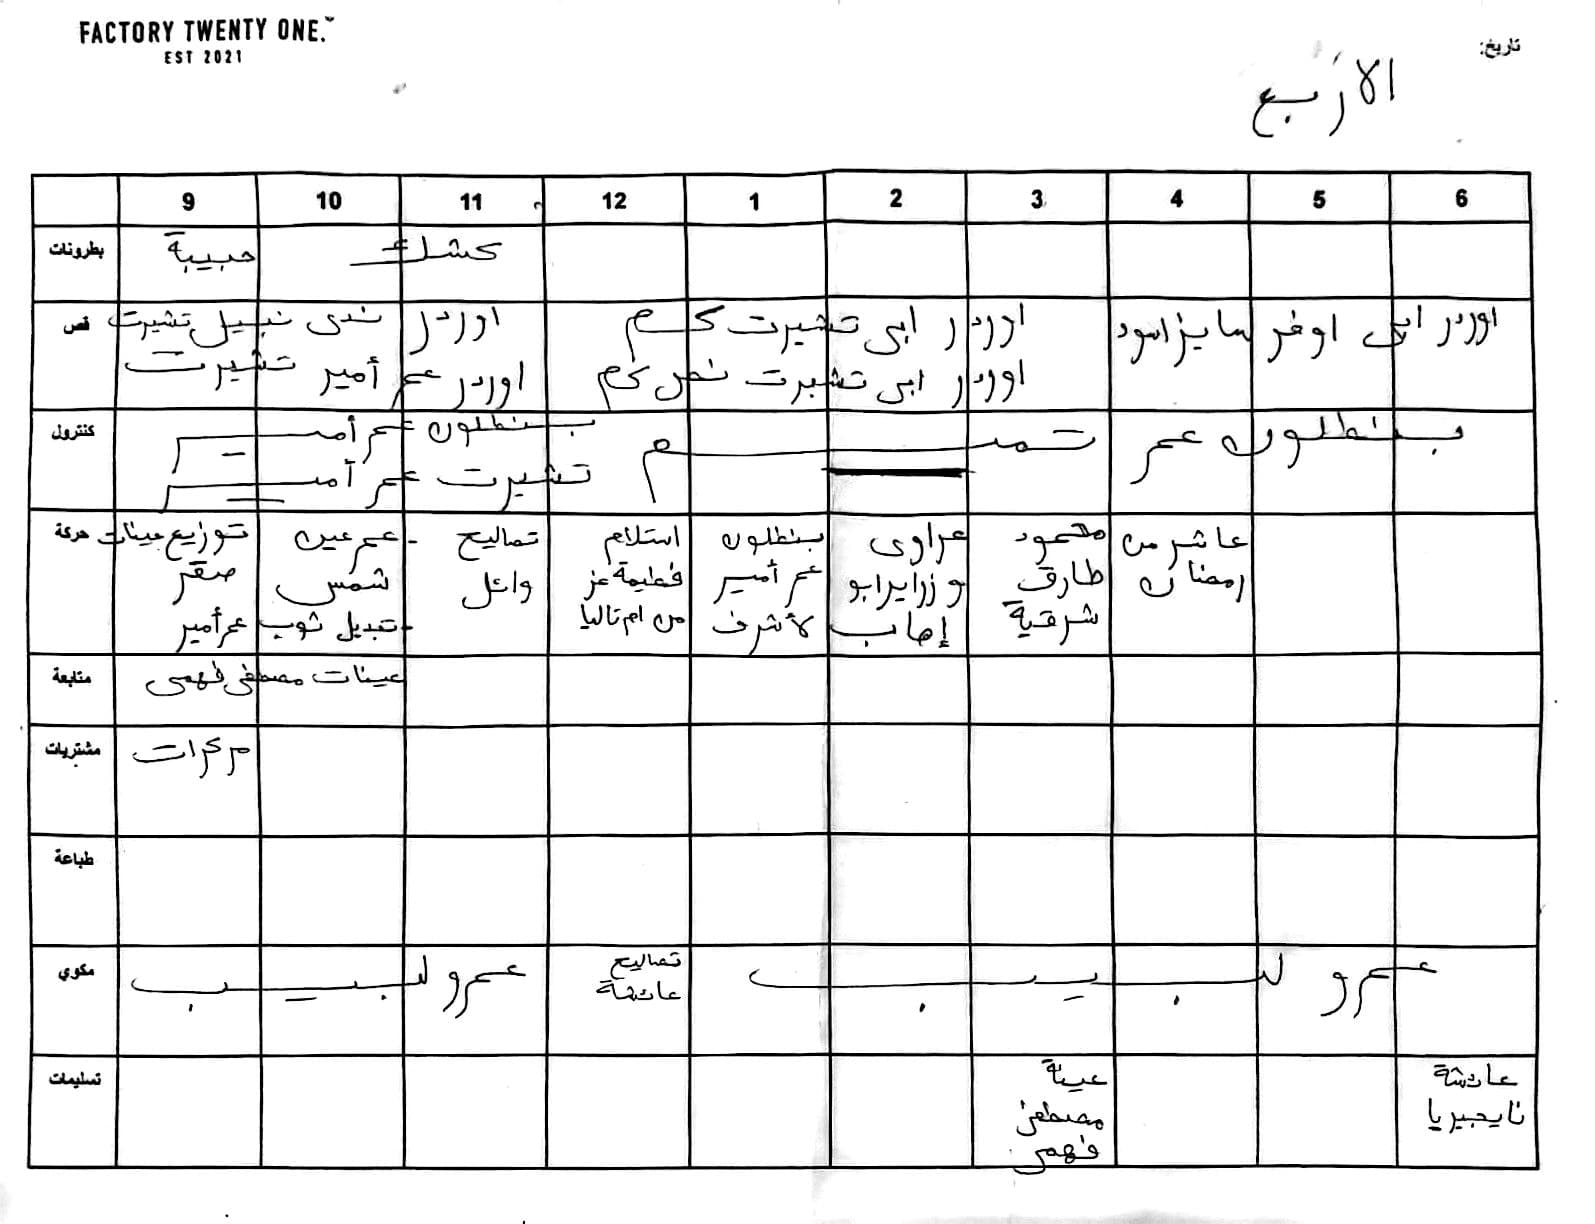 FACTORY TWENTY ONE.
EST 2021
تاريخ:
الاربع
9 10 11 12 1 2 3 4 5 6
بطرونات
حبيبة
كشك
قص
اوردر ندى نبيل تشيرت
اوردر عم أمير تشيرت
اوردر ابى تشيرت كم
اوردر ابى تشيرت نص كم
اوردر ابى اوفر سايز اسود
كنترول
بنطلون عم أمير
تشيرت عم أمير
تميم
بنطلون عم
حركة
توزيع عينات
صقر
عم أمير
- عم عين
شمس
- تبديل ثوب
تصاليح
وائل
استلام
فطيمة عز
من ام تاليا
بنطلون
عم أمير
لأشرف
عراوى
و زراير ابو
إهاب
محمود
طارق
شرقية
عاشر من
رمضان
متابعة
عينات مصطفى فهمى
مشتريات
مركرات
طباعة
مكوي
عمرو لبيب
تصاليح
عائشة
عمرو لبيب
تسليمات
عينة
مصطفى
فهمى
عائشة
نايجيريا